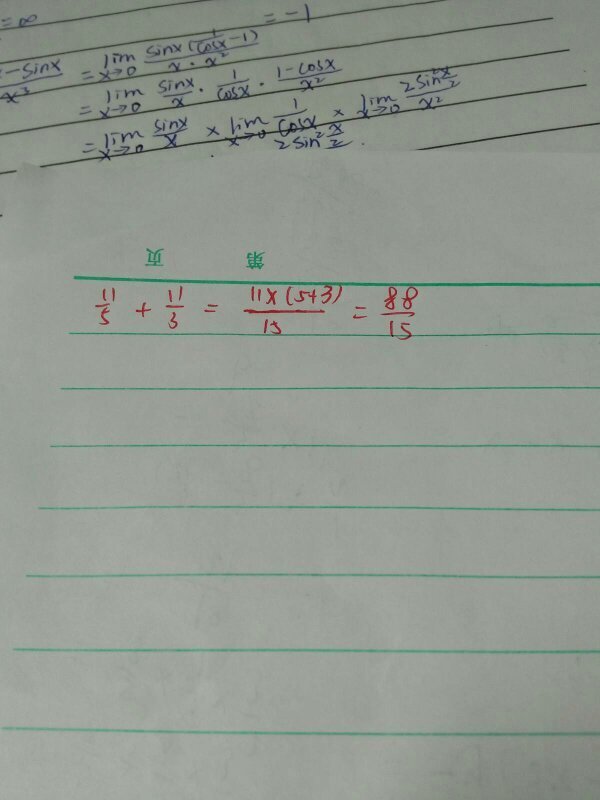 =∞
=-1
-sinx/x³ = lim x→0 sinx(1/cosx-1)/x·x²
= lim x→0 sinx/x · 1/cosx · 1-cosx/x²
= lim x→0 sinx/x × lim x→0 1/cosx × lim x→0 2sin²x/2/x²
2sin²x/2
第 页
11/5 + 11/3 = 11×(5+3)/15 = 88/15